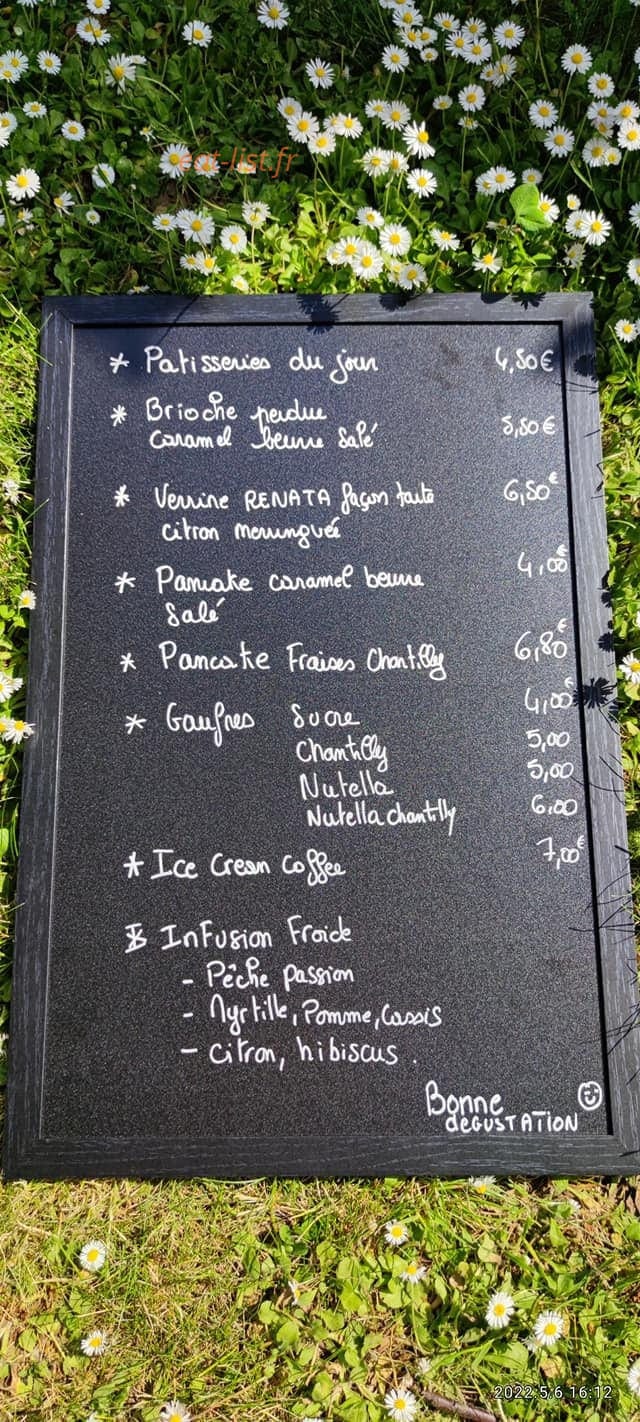 eat-list.fr
* Patisseries du jour 4,50€
* Brioche perdue
caramel beurre salé 5,50€
* Verrine RENATA façon tarte 6,50€
citron meringuée
* Pancake caramel beurre 4,00€
Salé
* Pancake Fraises Chantilly 6,80€
* Gaufres Sucre 4,00€
Chantilly 5,00
Nutella 5,00
Nutella chantilly 6,00
* Ice Cream Coffee 7,00€
* InFusion Froide
- Pêche passion
- Myrtille, Pomme, Cassis
- citron, hibiscus .
Bonne
deGUSTATION
2022.5.6 16:12